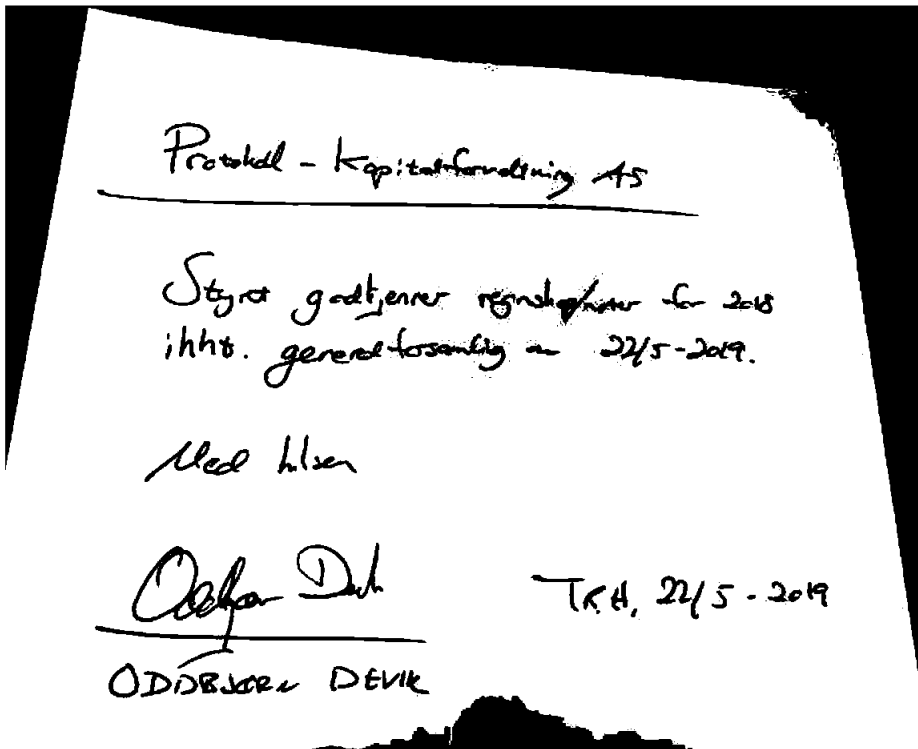 Protokoll - Kapitalforvaltning AS
Styret godkjenner regnskap/noter for 2018
ihht. generalforsamlig 22/5-2019.
Med hilsen
Oddbjørn Devik
TRH, 22/5-2019
ODDBJØRN DEVIK